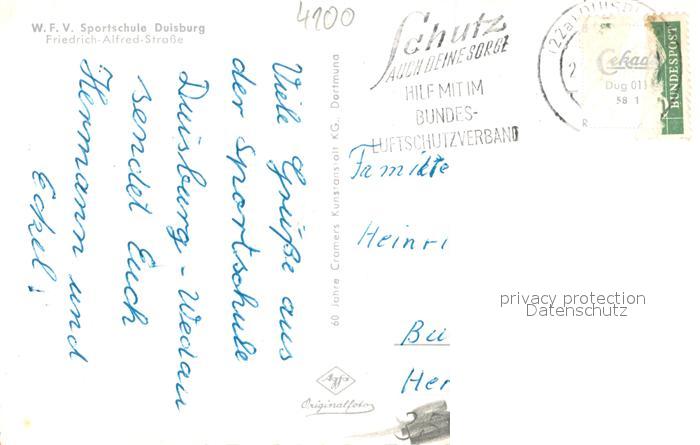 W. F. V. Sportschule Duisburg
Friedrich-Alfred-Straße
4100
Schutz
AUCH DEINE SORGE
HILF MIT IM
BUNDES-
LUFTSCHUTZVERBAND
(22a) DUISBU
Cekade
Dug 011
58 1
BUNDESPOST
Viele Grüße aus
der Sportschule
Duisburg-Wedau
sendet Euch
Hermann und
Eckel!
60 Jahre Cramers Kunstanstalt KG., Dortmund
Familie
Heinri
privacy protection
Datenschutz
Bu
Her
Agfa
Originalfoto